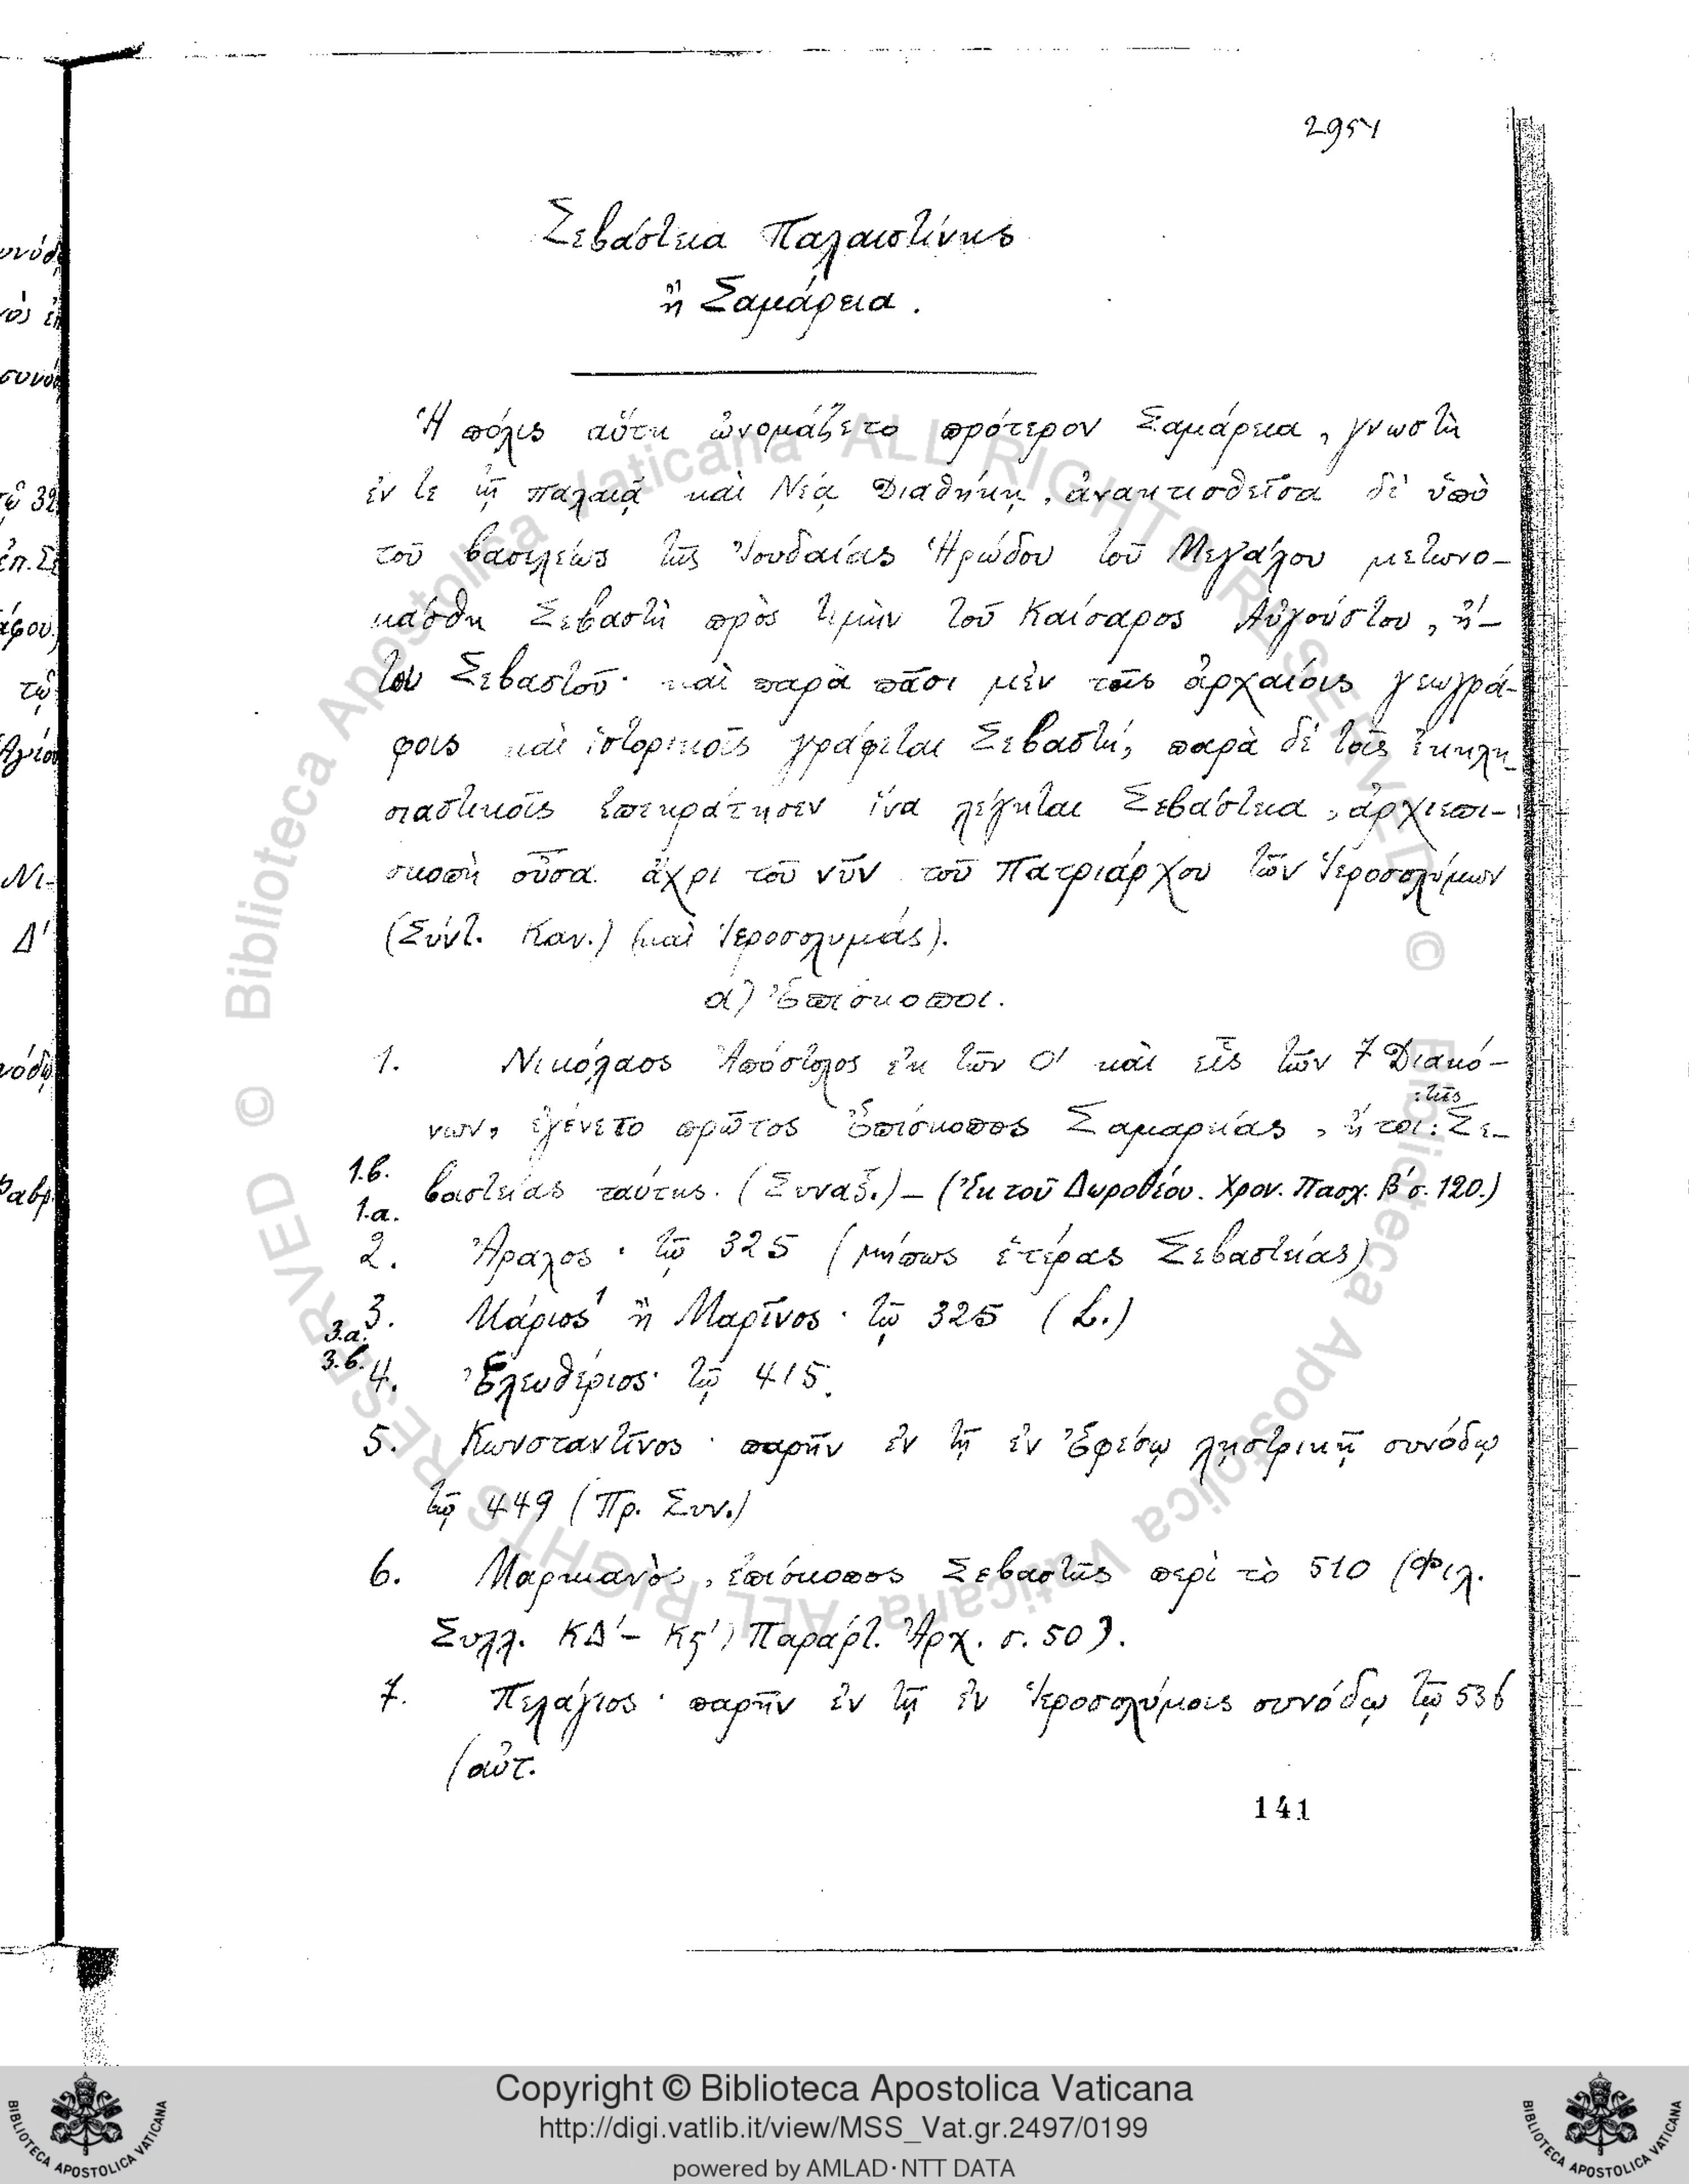 2954
Σεβάστεια Παλαιστίνης
ἢ Σαμάρεια.
Ἡ πόλις αὕτη ὠνομάζετο πρότερον Σαμάρεια, γνωστὴ
ἐν τε τῇ παλαιᾷ καὶ Νέᾳ Διαθήκῃ, ἀνακτισθεῖσα δὲ ὑπὸ
τοῦ βασιλέως τῆς Ἰουδαίας Ἡρώδου τοῦ Μεγάλου μετωνο-
μάσθη Σεβαστὴ πρὸς τιμὴν τοῦ Καίσαρος Αὐγούστου, ἤ-
τοι Σεβαστοῦ· καὶ παρὰ πᾶσι μὲν τοῖς ἀρχαίοις γεωγρά-
φοις καὶ ἱστορικοῖς γράφεται Σεβαστή, παρὰ δὲ τοῖς ἐκκλη-
σιαστικοῖς ἐπεκράτησεν ἵνα λέγηται Σεβάστεια, ἀρχιεπι-
σκοπὴ οὖσα ἄχρι τοῦ νῦν τοῦ Πατριάρχου τῶν Ἱεροσολύμων
(Σύντ. Καν.) (καὶ Ἱεροσολυμιάς).
α) Ἐπίσκοποι.
1. Νικόλαος Ἀπόστολος ἐκ τῶν Ο' καὶ εἷς τῶν 7 Διακό-
:τῆς
νων, ἐγένετο πρῶτος Ἐπίσκοπος Σαμαρείας, ἤτοι: Σε-
1.β. βαστείας ταύτης. (Συναξ.) – (Ἐκ τοῦ Δωροθέου. Χρον. Πασχ. Β' σ. 120.)
1.α.
2. Ἄραλος · τῷ 325 (μήπως ἑτέρας Σεβαστείας)
3. Μάριος¹ ἢ Μαρῖνος · τῷ 325 (L.)
3.α.
3.β. 4. Ἐλευθέριος· τῷ 415.
5. Κωνσταντῖνος · παρῆν ἐν τῇ ἐν Ἐφέσῳ λῃστρικῇ συνόδῳ
τῷ 449 (Πρ. Συν.)
6. Μαρκιανὸς, ἐπίσκοπος Σεβαστῆς περὶ τὸ 510 (Φιλ.
Συλλ. ΚΔ' – Κς') Παράρτ. Ἀρχ. σ. 50).
7. Πελάγιος · παρῆν ἐν τῇ ἐν Ἱεροσολύμοις συνόδῳ τῷ 536
(αὐτ.
141
Copyright © Biblioteca Apostolica Vaticana
http://digi.vatlib.it/view/MSS_Vat.gr.2497/0199
powered by AMLAD·NTT DATA
BIBLIOTECA APOSTOLICA VATICANA
BIBLIOTECA APOSTOLICA VATICANA
© Biblioteca Apostolica Vaticana ALL RIGHTS RESERVED
© Biblioteca Apostolica Vaticana ALL RIGHTS RESERVED